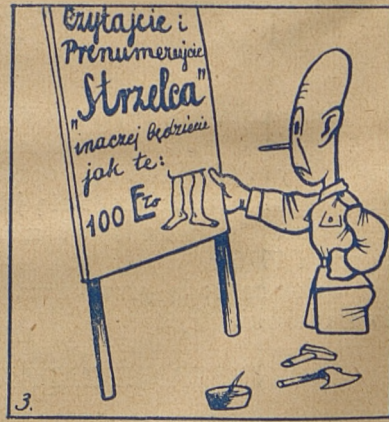 Czytajcie i
Prenumerujcie
"Strzelca"
inaczej będziecie
jak te:
100
3.